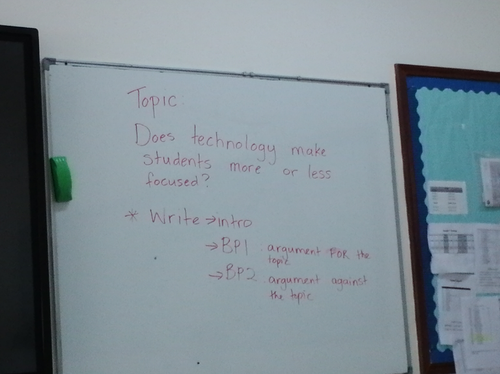 Topic:
Does technology make
students more or less
focused?
* Write → intro
→ BP1 : argument FOR the
topic
→ BP2 : argument against
the topic